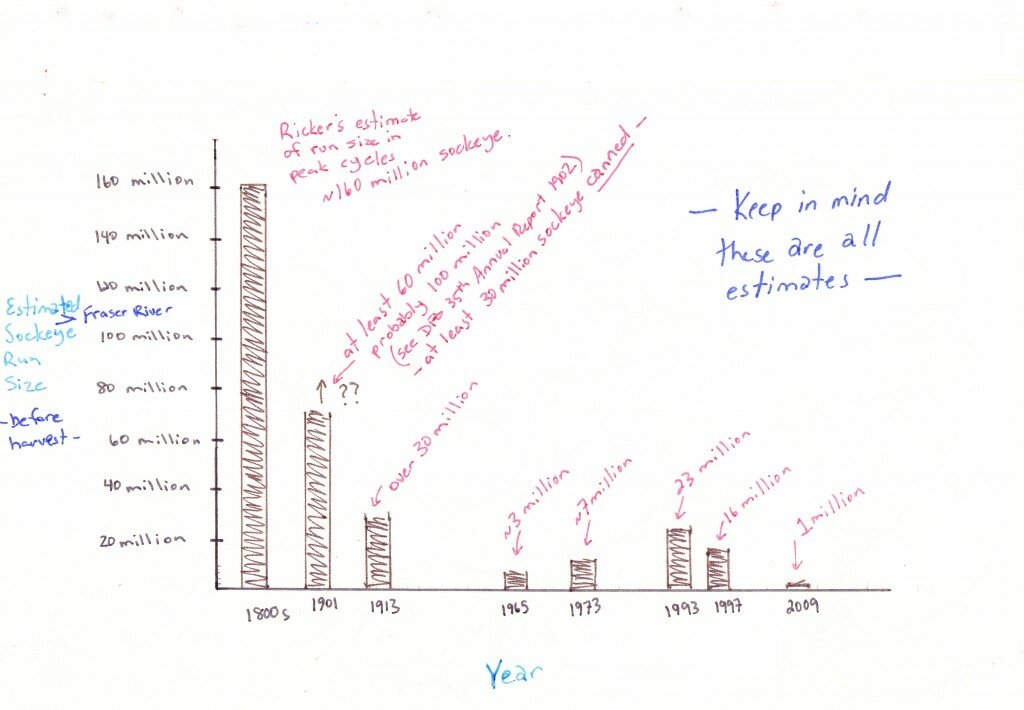 Ricker's estimate
of run size in
peak cycles
~160 million sockeye.
at least 60 million
probably 100 million
(see DFO 35th Annual Report 1902)
- at least 30 million sockeye canned -
— Keep in mind
these are all
estimates —
160 million
140 million
120 million
100 million
80 million
60 million
40 million
20 million
Estimated
Sockeye
Run
Size
> Fraser River
- before
harvest -
??
over 30 million
~3 million
~7 million
23 million
16 million
1 million
1800s
1901
1913
1965
1973
1993
1997
2009
Year